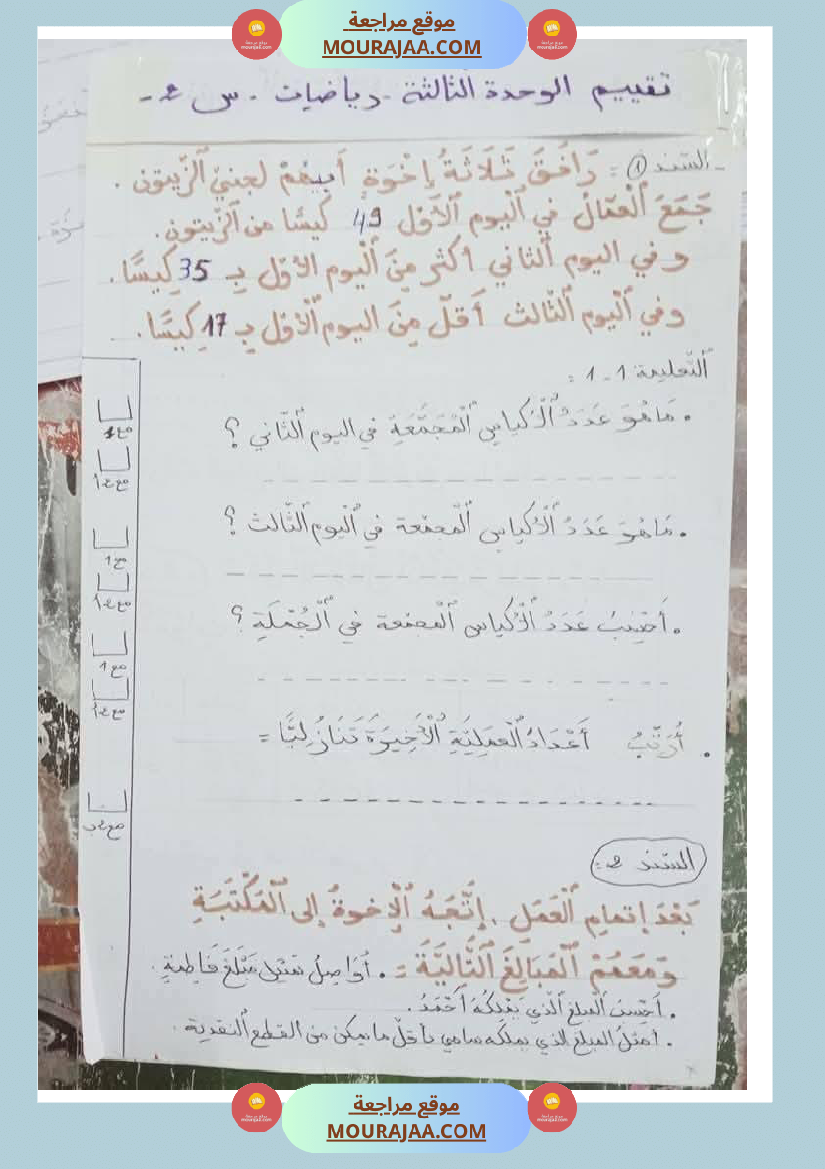 موقع مراجعة
MOURAJAA.COM
تقييم الوحدة الثالثة - رياضيات - س 2 -
- السّند 1 : رَافَقَ ثَلَاثَةُ إِخْوَةٍ أَبِيهُمْ لِجَنْيِ ٱلزَّيتون .
جَمَعَ ٱلْعُمَّالُ فِي ٱلْيوم ٱلْأوّل 49 كيسًا من ٱلزّيتون.
وفي اليوم ٱلثّاني أكثر مِنَ ٱلْيوم الأوّل بِـ 35 كِيسًا .
وفي ٱلْيوم ٱلثّالث أَقلّ مِنَ اليوم ٱلْأوّل بِـ 17 كِيسًا .
ٱلتّعليمة 1 - 1 :
• مَا هُوَ عَدَدُ ٱلْأكياس ٱلْمُجَمَّعَةِ في اليوم ٱلثّاني ؟
مع1
مع2أ
• مَا هُوَ عَدَدُ ٱلْأكياس ٱلْمجمّعة في ٱلْيوم ٱلثّالث ؟
مع1
مع2أ
• أَحْسِبُ عَدَدُ ٱلْأكياس ٱلْمجمّعة في ٱلْجُمْلَةِ ؟
مع1
مع2أ
• أُرَتِّبُ أَعْدَادُ ٱلْعَمَلِيَّةِ ٱلْأَخِيرَةِ تَنَازُلِيًّا =
مع2ب
السّند 2 :
بَعْدَ إتمامِ ٱلْعَمَلِ . إتَّجَهَ ٱلْإخوةُ إلى ٱلْمَكْتَبَةِ
وَمَعَهُمْ ٱلْمَبَالِغَ ٱلتَّالِيَّةَ : • أُوَاصِلُ تمثيل مَبْلَغَ فَاطِمَةِ .
• أحسبُ ٱلْمبلغ ٱلّذي يَمْلِكُهُ أَحْمَدُ .
• أمثّلُ المبلغ الذي يملكه سامي بأقلّ ما يمكن من القطع ٱلنّقديّة .
موقع مراجعة
MOURAJAA.COM